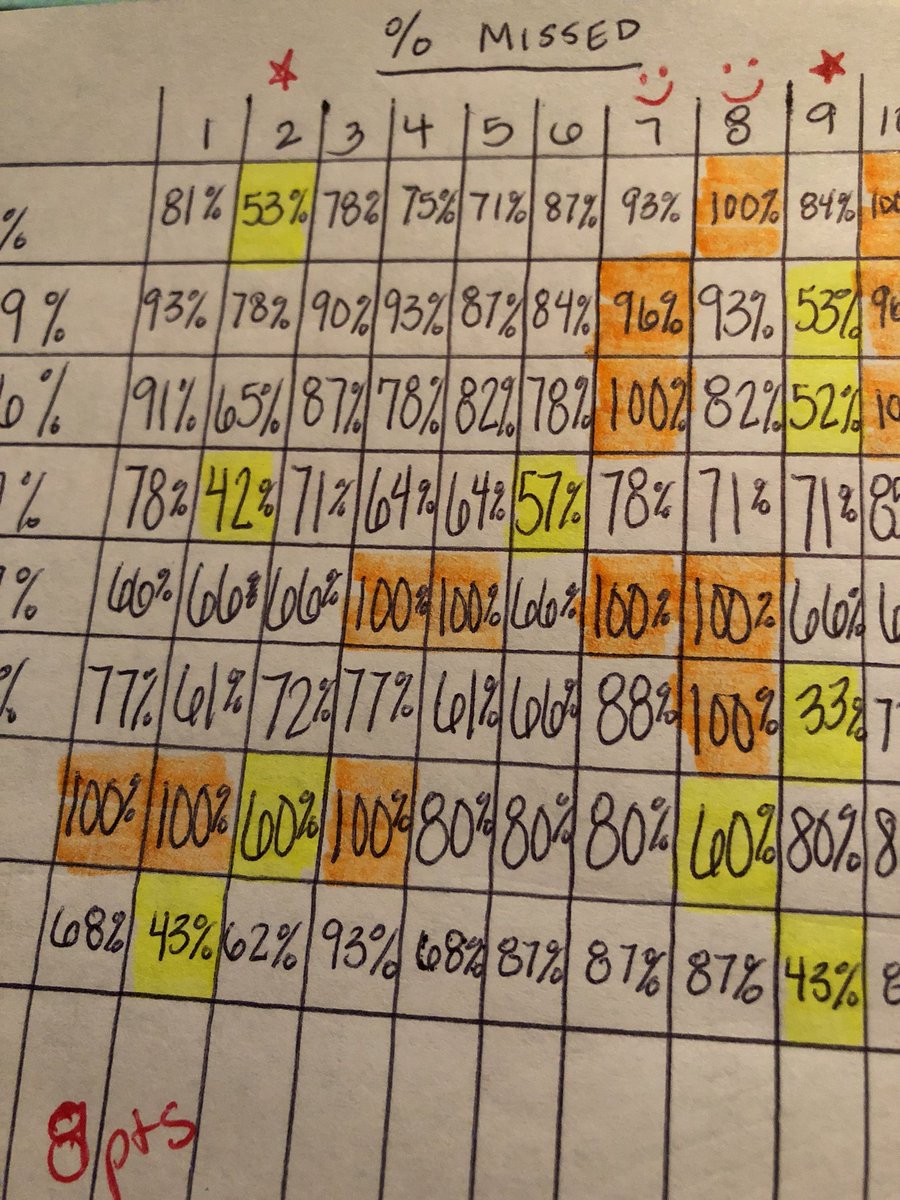 % MISSED
1 2 3 4 5 6 7 8 9
% 81% 53% 78% 75% 71% 87% 93% 100% 84%
9% 93% 78% 90% 93% 87% 84% 96% 93% 53%
6% 91% 65% 87% 78% 82% 78% 100% 82% 52%
% 78% 42% 71% 64% 64% 57% 78% 71% 71%
% 66% 66% 66% 100% 100% 66% 100% 100% 66%
% 77% 61% 72% 77% 61% 66% 88% 100% 33%
100% 100% 60% 100% 80% 80% 80% 60% 80%
68% 43% 62% 93% 68% 87% 87% 87% 43%
8 pts